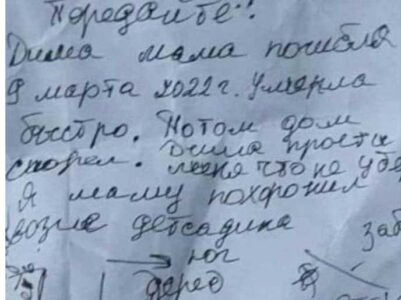 Передайте!!
Дима мама погибла
9 марта 2022г. Умерла
быстро. Потом дом
сгорел. Дима прости
меня что не убе
Я маму похоронил
возле детсадика
юг
дерев
заб